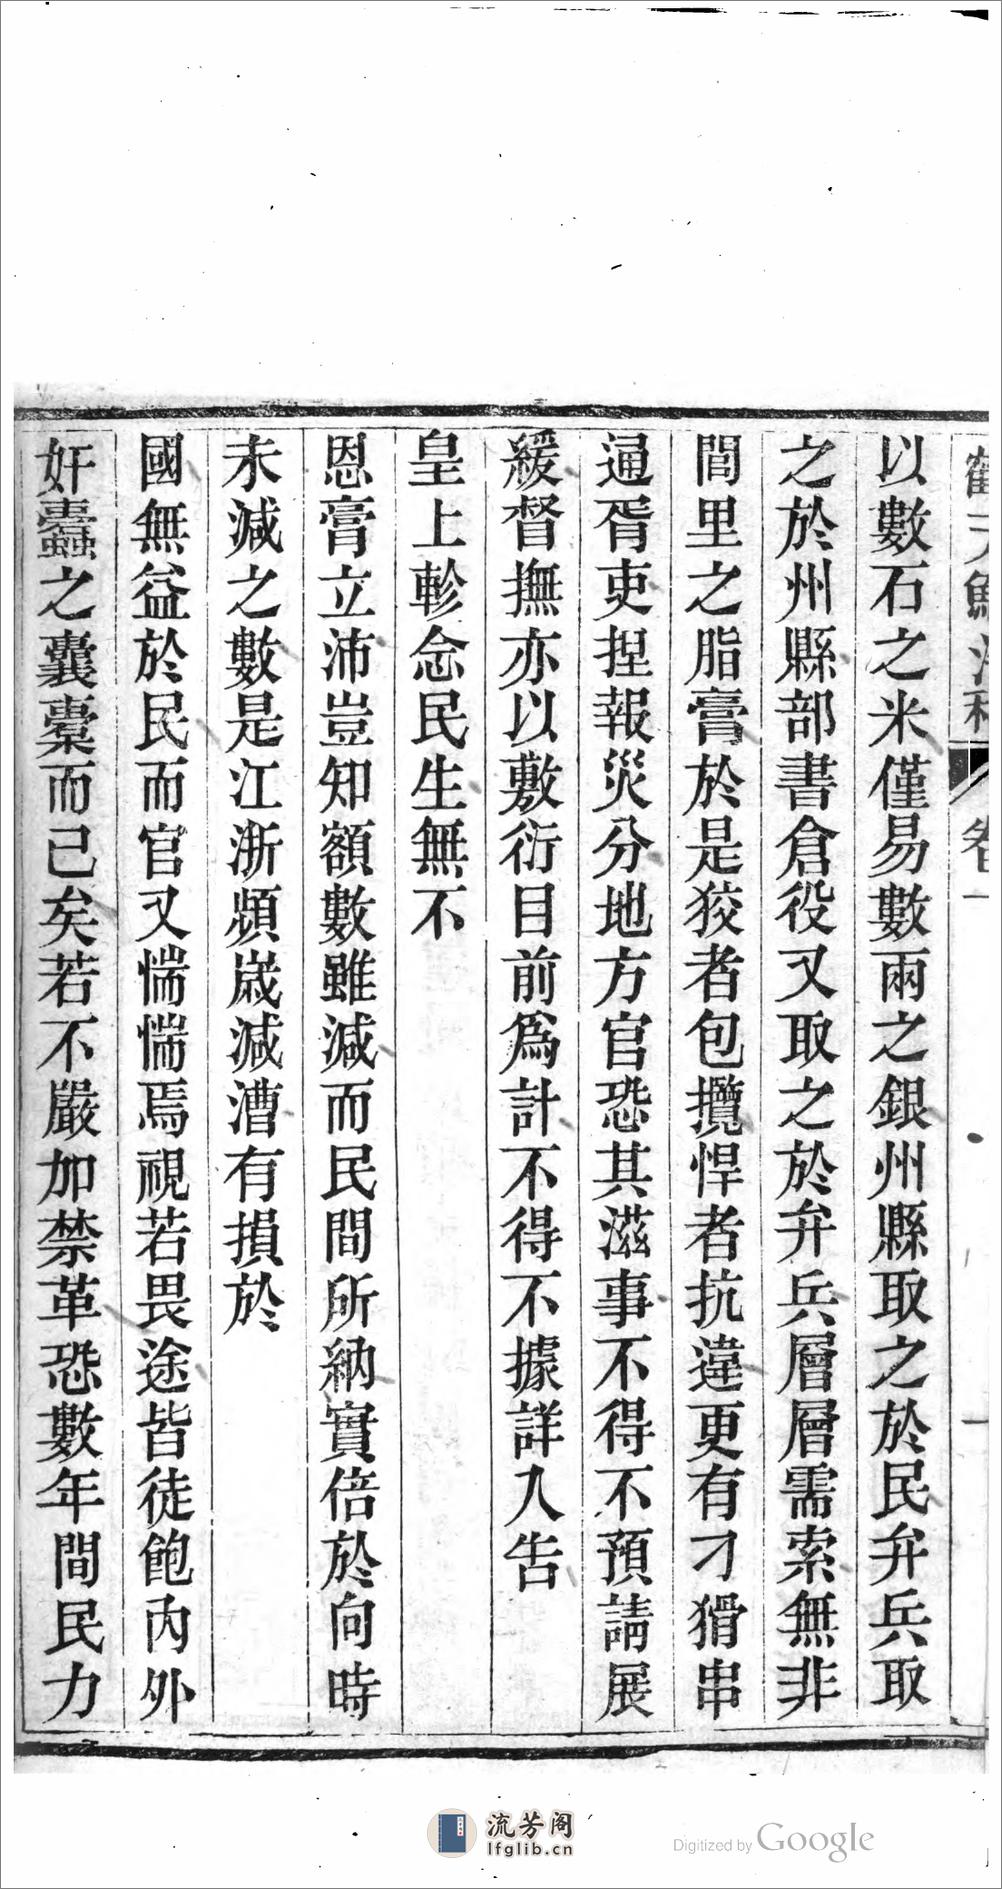 以數石之米僅易數兩之銀州縣取之於民弁兵取
之於州縣部書倉役又取之於弁兵層層需索無非
閭里之脂膏於是狡者包攬悍者抗違更有刁猾串
通胥吏捏報災分地方官恐其滋事不得不預請展
緩督撫亦以敷衍目前爲計不得不據詳入告
皇上軫念民生無不
恩膏立沛豈知額數雖減而民間所納實倍於向時
未減之數是江浙頻歲減漕有損於
國無益於民而官又惴惴焉視若畏途皆徒飽內外
奸蠹之囊橐而己矣若不嚴加禁革恐數年間民力
流芳阁
lfglib.cn
Digitized by Google